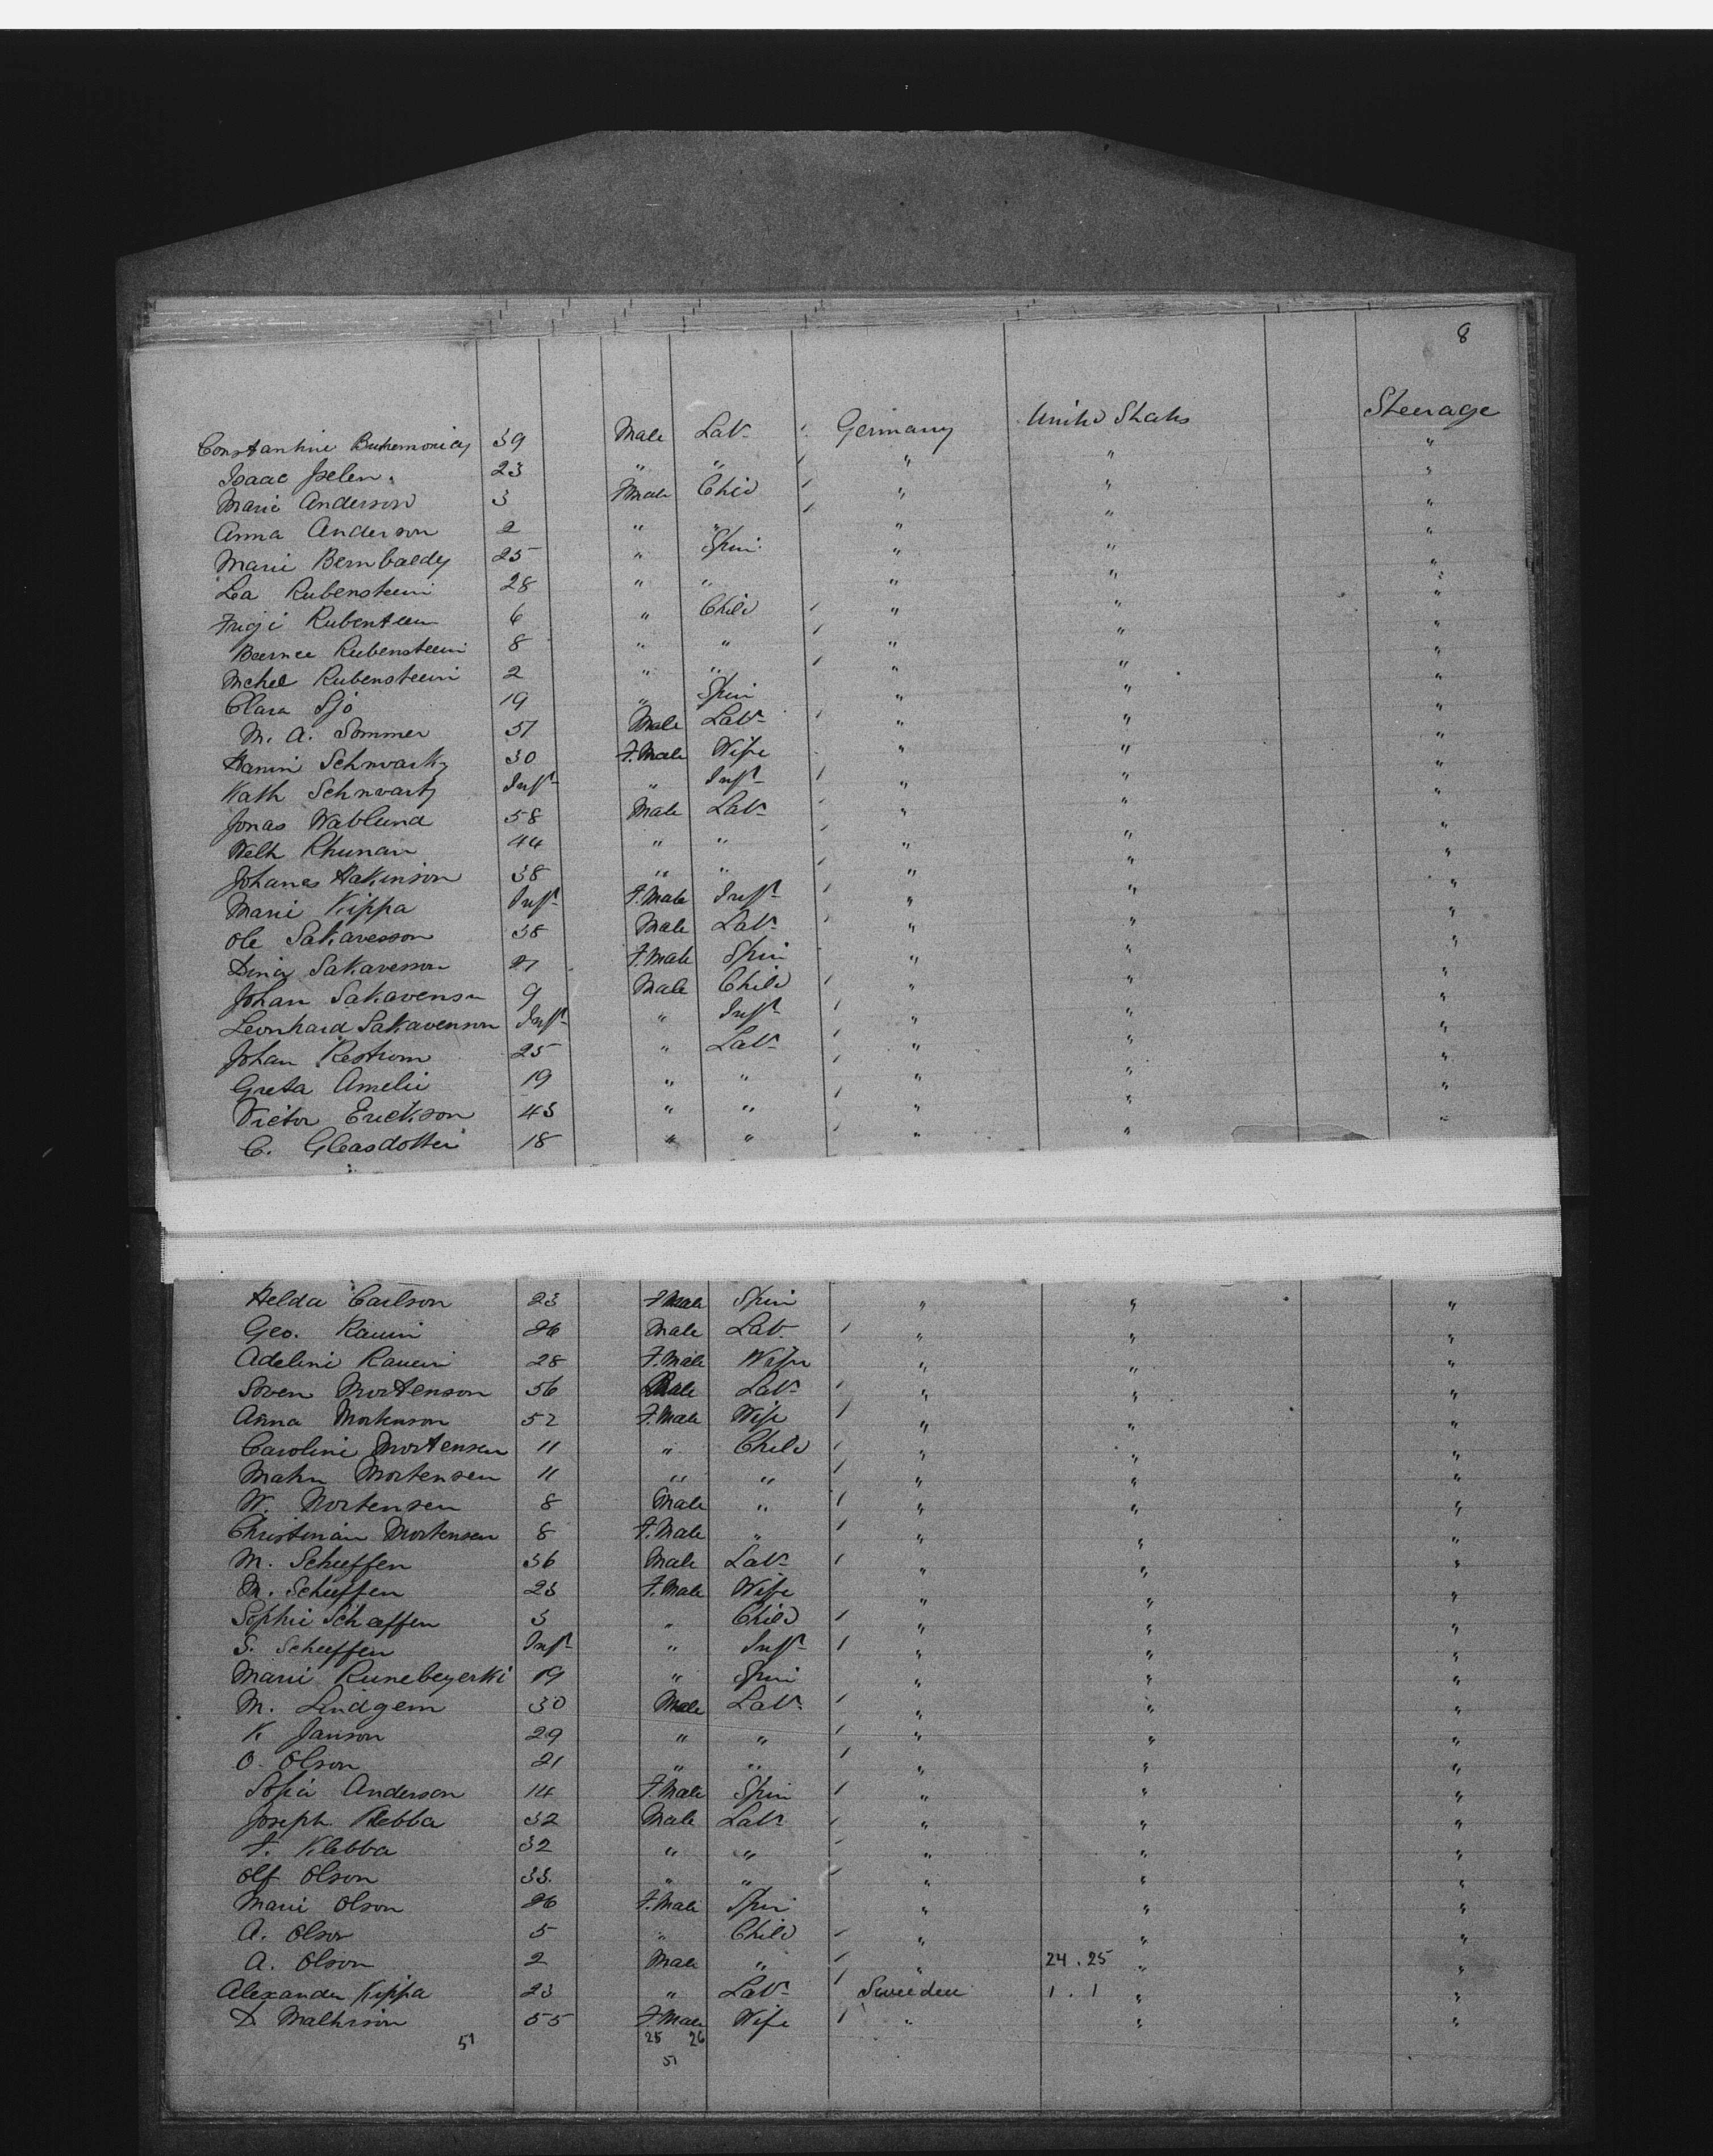 8
Constantine 39 Male Lab. Germany United States Steerage
Isaac Iselen. 23 " " " " "
Marie Anderson 3 F Male Chid " " "
Anna Anderson 2 " " " " "
Marie Bernbaldy 25 " Spin. " " "
Lea Rubenstein 28 " " " " "
Rubentein 6 " Child " " "
Rubenstein 8 " " " " "
Mchel Rubenstein 2 " " " " "
Clara Sjo 19 " Spin " " "
M. A. Sommer 51 Male Lab. " " "
Schwartz 30 F. Male Wife " " "
Kath Schwartz Inft " Inft " " "
Jonas Wablund 58 Male Lab. " " "
Khunan 44 " " " " "
Johanes Hakinson 38 " " " " "
Marie Kippa Inft F. Male Inft " " "
Ole Sakavesson 38 Male Lab. " " "
Dina Sakavesson 27 F. Male Spin " " "
Johan Sakavenson 9 Male Child " " "
Leonhard Sakavenson Inft " Inft " " "
Johan Restrom 25 " Lab. " " "
Greta Amelie 19 " " " " "
Victor Erickson 43 " " " " "
C. Gleasdotter 18 " " " " "
Helda Carlson 23 F Male Spin " " "
Geo. Rauin 26 Male Lab " " "
Adeline Rauein 28 F. Male Wife " " "
Soven Mortenson 56 Male Lab. " " "
Anna Mortenson 52 F. Male Wife " " "
Caroline Mortensen 11 " Child " " "
Mortensen 11 " " " " "
W. Mortensen 8 Male " " " "
Christinan Mortensen 8 F. Male " " " "
M. Scheffen 36 Male Lab. " " "
M. Scheffen 23 F. Male Wife " " "
Sophie Schaffen 3 " Child " " "
S. Scheffen Inft " Inft " " "
Marie Runebeyerki 19 " Spin " " "
M. Lindgern 30 Male Lab. " " "
K Janson 29 " " " " "
O. Olson 21 " " " " "
Sofia Anderson 14 F. Male Spin " " "
Joseph Klebba 32 Male Lab. " " "
F. Klebba 32 " " " " "
Olf Olson 33. " " " " "
Marie Olson 26 F. Male Spin " " "
A. Olson 5 " Child " " "
A. Olson 2 Male " " 24 . 25 " "
Alexander Kippa 23 " Lab. Sweeden 1 . 1 " "
D Mathison 55 F. Male Wife " " "
51 25 26
51